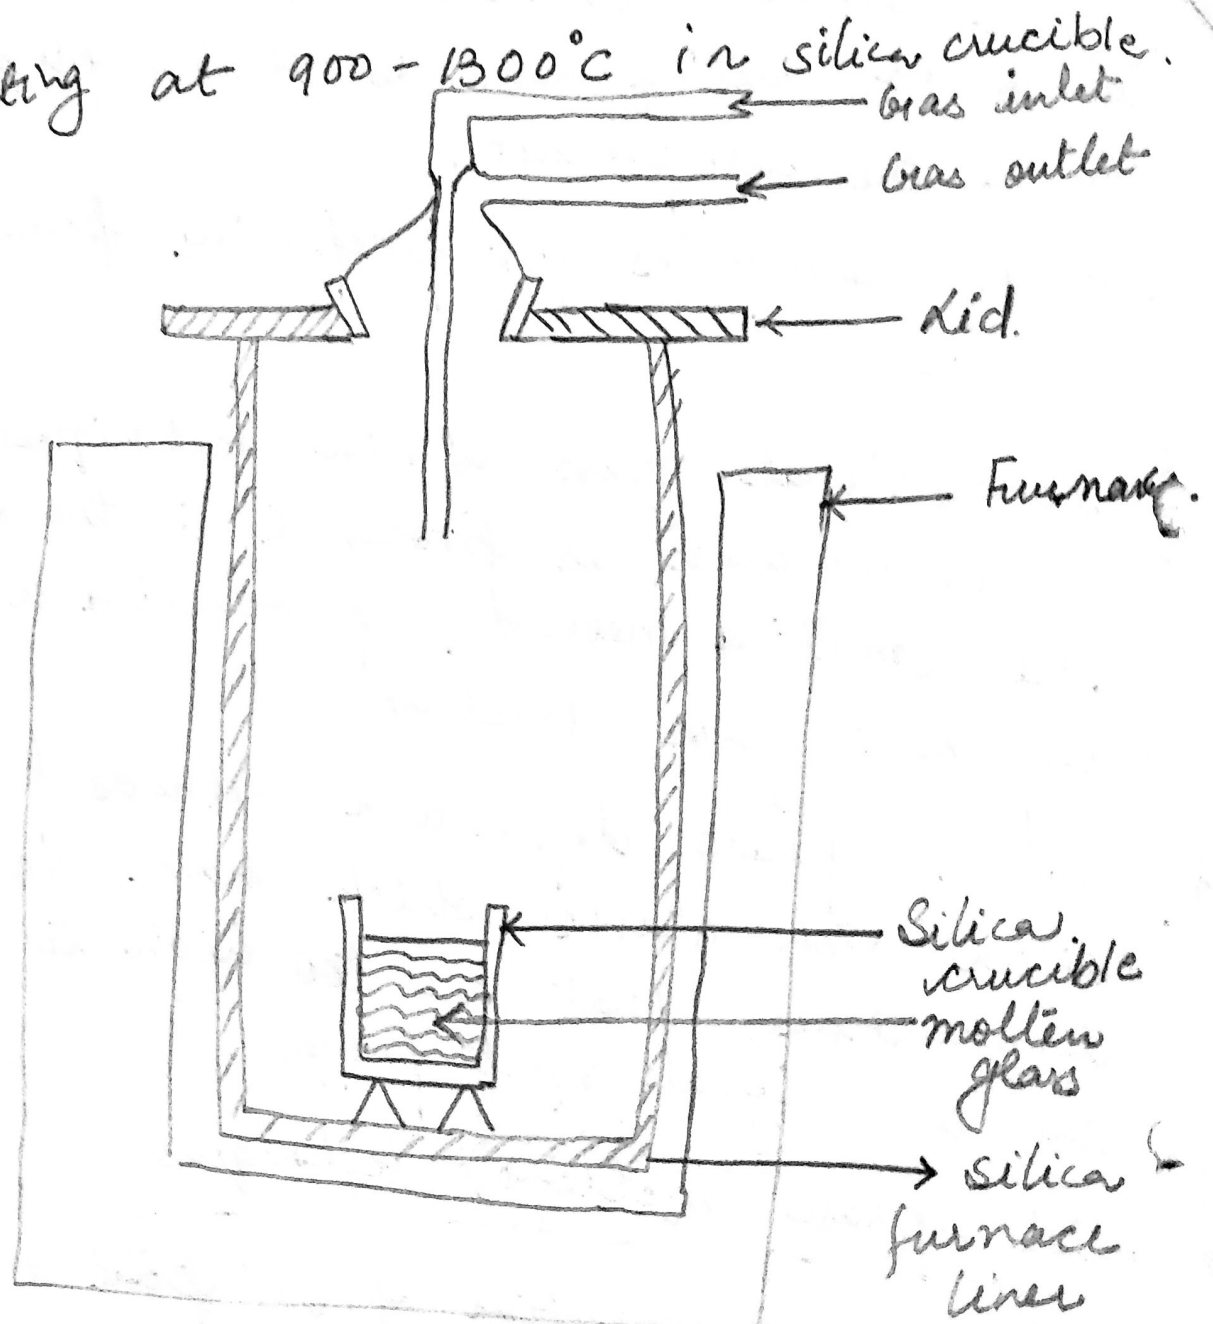 ting at 900-1300°C in silica crucible.
Gas inlet
Gas outlet
Lid.
Furnace.
Silica
crucible
molten
glass
silica
furnace
liner